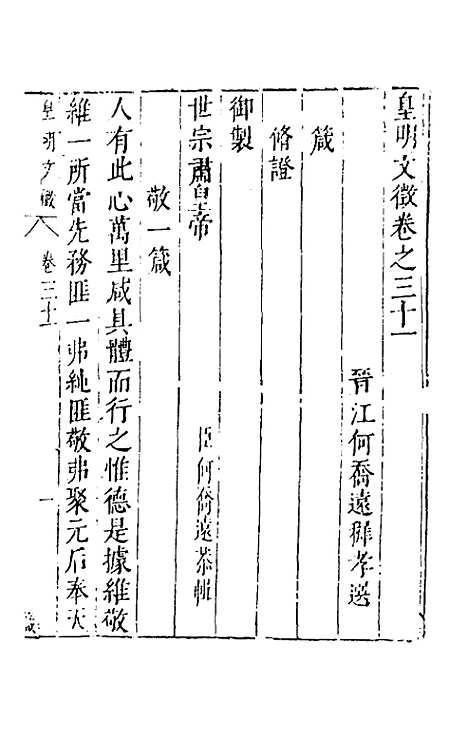 皇明文徵卷之三十一
晉江何喬遠穉孝選
箴
脩證
御製
世宗肅皇帝
臣何喬遠恭輯
敬一箴
人有此心萬里咸具體而行之惟德是據維敬
維一所當先務匪一弗純匪敬弗聚元后奉天
皇明文徵
卷三十一
一
箴